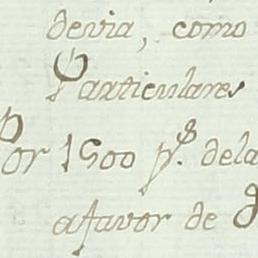 devia, como
Particulares
Por 1500 p.s dela
afavor de